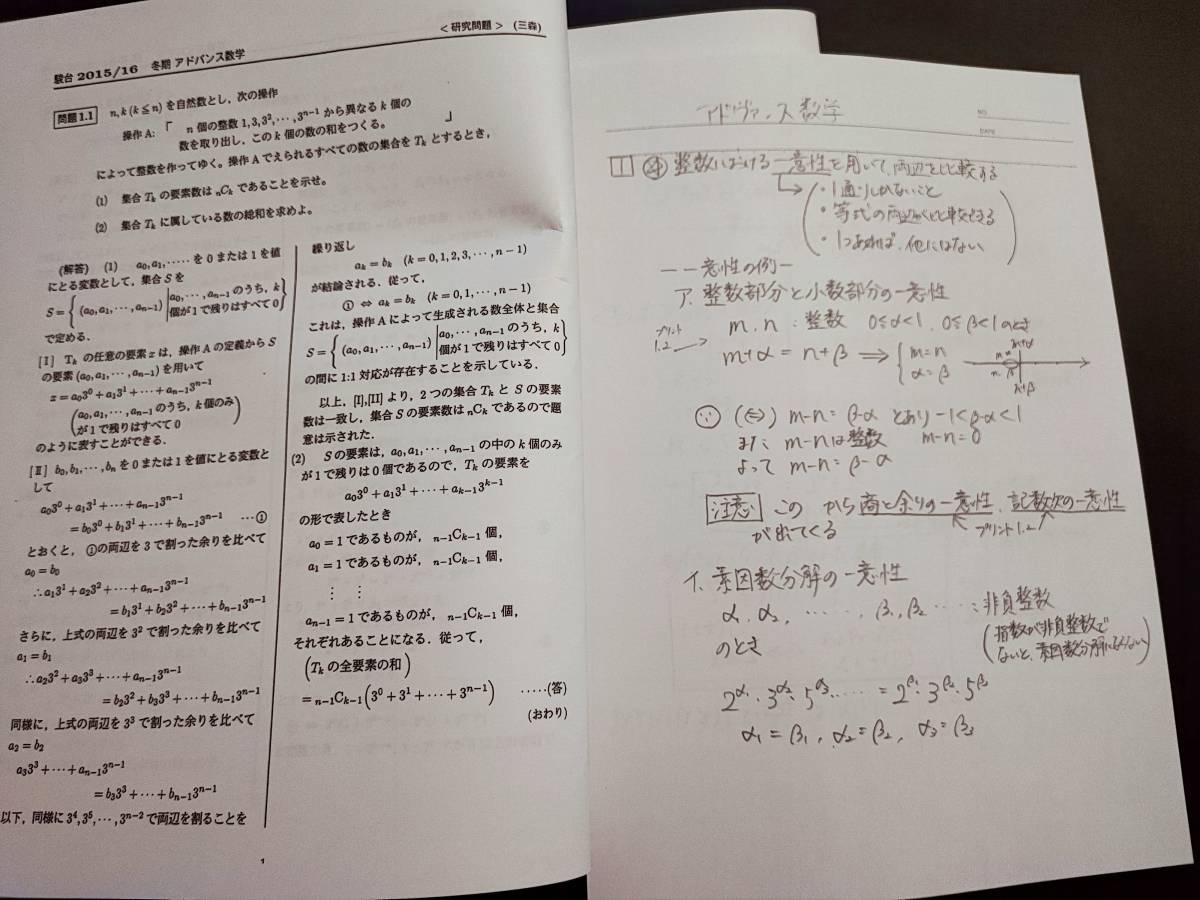 <研究問題> (三森)
駿台 2015/16 冬期 アドバンス数学
問題1.1 n, k (k≦n) を自然数とし,次の操作
操作A: 「 n 個の整数 1, 3, 3², ⋯, 3ⁿ⁻¹ から異なる k 個の
数を取り出し,この k 個の数の和をつくる. 」
によって整数を作ってゆく.操作Aでえられるすべての数の集合を Tₖ とするとき,
(1) 集合 Tₖ の要素数は ₙCₖ であることを示せ.
(2) 集合 Tₖ に属している数の総和を求めよ.
(解答) (1) a₀, a₁, ⋯⋯ を 0 または 1 を値
にとる変数として,集合 S を
S = { (a₀, a₁, ⋯, aₙ₋₁) | a₀, ⋯, aₙ₋₁ のうち, k
個が 1 で残りはすべて 0 }
で定める.
[I] Tₖ の任意の要素 x は,操作Aの定義から S
の要素 (a₀, a₁, ⋯, aₙ₋₁) を用いて
x = a₀3⁰ + a₁3¹ + ⋯ + aₙ₋₁3ⁿ⁻¹
(a₀, a₁, ⋯, aₙ₋₁ のうち, k 個のみ
が 1 で残りはすべて 0)
のように表すことができる.
[II] b₀, b₁, ⋯, bₙ を 0 または 1 を値にとる変数と
して
a₀3⁰ + a₁3¹ + ⋯ + aₙ₋₁3ⁿ⁻¹
= b₀3⁰ + b₁3¹ + ⋯ + bₙ₋₁3ⁿ⁻¹ ⋯①
とおくと, ①の両辺を 3 で割った余りを比べて
a₀ = b₀
∴a₁3¹ + a₂3² + ⋯ + aₙ₋₁3ⁿ⁻¹
= b₁3¹ + b₂3² + ⋯ + bₙ₋₁3ⁿ⁻¹
さらに,上式の両辺を 3² で割った余りを比べて
a₁ = b₁
∴a₂3² + a₃3³ + ⋯ + aₙ₋₁3ⁿ⁻¹
= b₂3² + b₃3³ + ⋯ + bₙ₋₁3ⁿ⁻¹
同様に,上式の両辺を 3³ で割った余りを比べて
a₂ = b₂
a₃3³ + ⋯ + aₙ₋₁3ⁿ⁻¹
= b₃3³ + ⋯ + bₙ₋₁3ⁿ⁻¹
以下,同様に 3⁴, 3⁵, ⋯, 3ⁿ⁻² で両辺を割ることを
繰り返し
aₖ = bₖ (k = 0, 1, 2, 3, ⋯, n − 1)
が結論される.従って,
① ⇔ aₖ = bₖ (k = 0, 1, ⋯, n − 1)
これは,操作Aによって生成される数全体と集合
S = { (a₀, a₁, ⋯, aₙ₋₁) | a₀, ⋯, aₙ₋₁ のうち, k
個が 1 で残りはすべて 0 }
の間に 1:1 対応が存在することを示している.
以上, [I],[II] より, 2 つの集合 Tₖ と S の要素
数は一致し,集合 S の要素数は ₙCₖ であるので題
意は示された.
(2) S の要素は, a₀, a₁, ⋯, aₙ₋₁ の中の k 個のみ
が 1 で残りは 0 個であるので, Tₖ の要素を
a₀3⁰ + a₁3¹ + ⋯ + aₖ₋₁3ᵏ⁻¹
の形で表したとき
a₀ = 1 であるものが, ₙ₋₁Cₖ₋₁ 個,
a₁ = 1 であるものが, ₙ₋₁Cₖ₋₁ 個,
⋮ ⋮
aₙ₋₁ = 1 であるものが, ₙ₋₁Cₖ₋₁ 個,
それぞれあることになる.従って,
(Tₖ の全要素の和)
= ₙ₋₁Cₖ₋₁ (3⁰ + 3¹ + ⋯ + 3ⁿ⁻¹) ⋯⋯(答)
(おわり)
1
アドヴァンス数学
NO.
DATE
1 整数における一意性を用いて、両辺を比較する
・1通りしかないこと
・等式の両辺が比較できる
・1つあれば、他にはない
ー一意性の例ー
ア. 整数部分と小数部分の一意性
プリント
1.2
m, n : 整数 0≦α<1, 0≦β<1 のとき
m+α = n+β ⟹ { m=n
α=β
m n m+α
n+β
∵ (⇔) m−n = β−α とあり −1<β−α<1
また m−nは整数 m−n=0
よって m−n=β−α
注意 この から商と余りの一意性、記数次の一意性
が出てくる プリント1.2
イ. 素因数分解の一意性
α₁, α₂, ⋯⋯ β₁, β₂ ⋯⋯ : 非負整数
のとき
(指数が非負整数で
ないと、素因数分解にならない)
2^α₁・3^α₂・5^α₃ ⋯⋯ = 2^β₁・3^β₂・5^β₃
α₁ = β₁, α₂ = β₂, α₃ = β₃